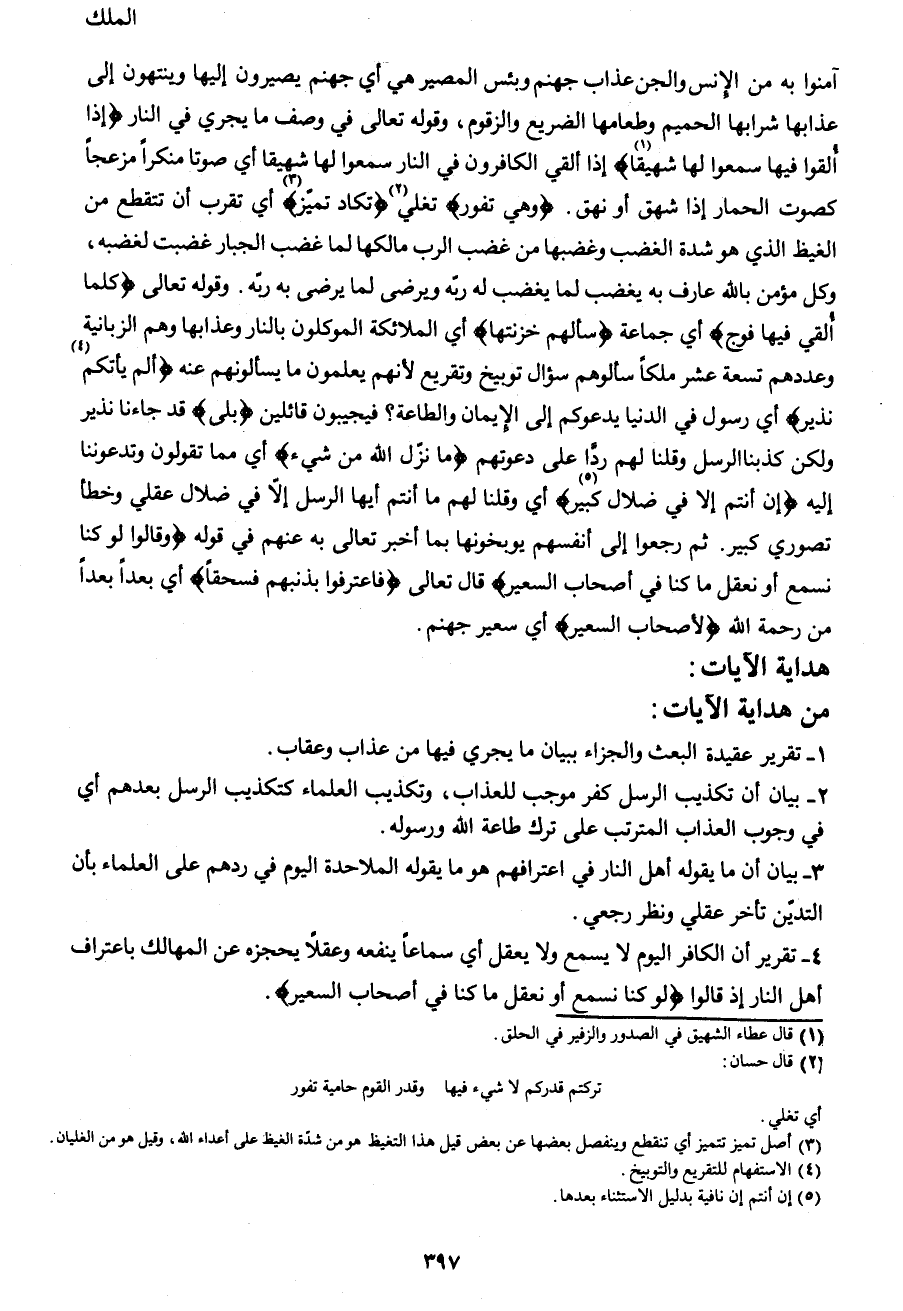 الملك
آمنوا به من الإنس والجن عذاب جهنم وبئس المصير هي أي جهنم يصيرون إليها وينتهون إلى
عذابها شرابها الحميم وطعامها الضريع والزقوم، وقوله تعالى في وصف ما يجري في النار ﴿إذا
ألقوا فيها سمعوا لها شهيقا(١)﴾ إذا ألقي الكافرون في النار سمعوا لها شهيقا أي صوتا منكراً مزعجاً
كصوت الحمار إذا شهق أو نهق. ﴿وهي تفور﴾ تغلي(٢) ﴿تكاد تميّز(٣)﴾ أي تقرب أن تتقطع من
الغيظ الذي هو شدة الغضب وغضبها من غضب الرب مالكها لما غضب الجبار غضبت لغضبه،
وكل مؤمن بالله عارف به يغضب لما يغضب له ربّه ويرضى لما يرضى به ربّه. وقوله تعالى ﴿كلما
ألقي فيها فوج﴾ أي جماعة ﴿سألهم خزنتها﴾ أي الملائكة الموكلون بالنار وعذابها وهم الزبانية
وعددهم تسعة عشر ملكاً سألوهم سؤال توبيخ وتقريع لأنهم يعلمون ما يسألونهم عنه ﴿ألم يأتكم(٤)
نذير﴾ أي رسول في الدنيا يدعوكم إلى الإيمان والطاعة؟ فيجيبون قائلين ﴿بلى﴾ قد جاءنا نذير
ولكن كذبنا الرسل وقلنا لهم ردًّا على دعوتهم ﴿ما نزّل الله من شيء﴾ أي مما تقولون وتدعوننا
إليه ﴿إن أنتم إلا في ضلال كبير(٥)﴾ أي وقلنا لهم ما أنتم أيها الرسل إلّا في ضلال عقلي وخطأ
تصوري كبير. ثم رجعوا إلى أنفسهم يوبخونها بما أخبر تعالى به عنهم في قوله ﴿وقالوا لو كنا
نسمع أو نعقل ما كنا في أصحاب السعير﴾ قال تعالى ﴿فاعترفوا بذنبهم فسحقاً﴾ أي بعداً بعداً
من رحمة الله ﴿لأصحاب السعير﴾ أي سعير جهنم.
هداية الآيات:
من هداية الآيات:
١ـ تقرير عقيدة البعث والجزاء ببيان ما يجري فيها من عذاب وعقاب.
٢ـ بيان أن تكذيب الرسل كفر موجب للعذاب، وتكذيب العلماء كتكذيب الرسل بعدهم أي
في وجوب العذاب المترتب على ترك طاعة الله ورسوله.
٣ـ بيان أن ما يقوله أهل النار في اعترافهم هو ما يقوله الملاحدة اليوم في ردهم على العلماء بأن
التديّن تأخر عقلي ونظر رجعي.
٤ـ تقرير أن الكافر اليوم لا يسمع ولا يعقل أي سماعاً ينفعه وعقلاً يحجزه عن المهالك باعتراف
أهل النار إذ قالوا ﴿لو كنا نسمع أو نعقل ما كنا في أصحاب السعير﴾.
(١) قال عطاء الشهيق في الصدور والزفير في الحلق.
(٢) قال حسان:
تركتم قدركم لا شيء فيها وقدر القوم حامية تفور
أي تغلي.
(٣) أصل تميز تتميز أي تنقطع وينفصل بعضها عن بعض قيل هذا التغيظ هو من شدّة الغيظ على أعداء الله، وقيل هو من الغليان.
(٤) الاستفهام للتقريع والتوبيخ.
(٥) إن أنتم إن نافية بدليل الاستثناء بعدها.
٣٩٧